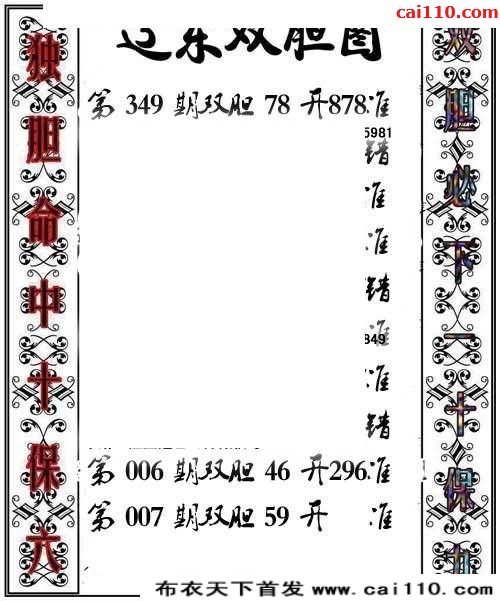 cai110.com
辽东双胆图
独胆命中十保六
双胆必下一十保九
第 349 期双胆 78 开878准
5981
错
准
准
错
准
849
准
错
第 006 期双胆 46 开296准
第 007 期双胆 59 开 准
布衣天下首发 www.cai110.com